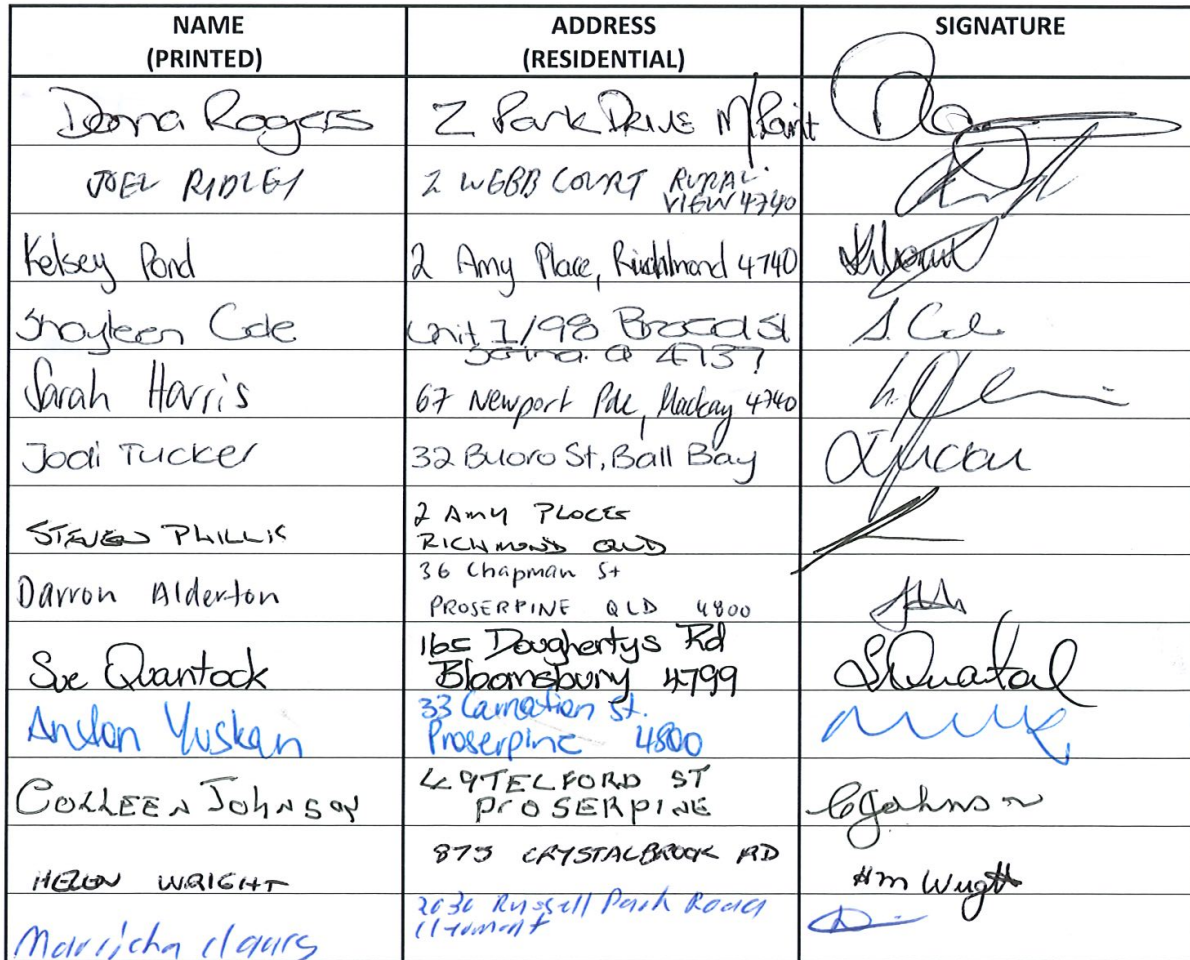 NAME
(PRINTED)
ADDRESS
(RESIDENTIAL)
SIGNATURE
Donna Rogers
2 Park Drive M/Point
JOEL RIDLEY
2 WEBB COURT RURAL
VIEW 4740
Kelsey Pond
2 Amy Place, Richmond 4740
Shayleen Cole
Unit 1/98 Broad St
Sarina Q 4737
S. Cole
Sarah Harris
67 Newport Pde, Mackay 4740
Jodi Tucker
32 Buoro St, Ball Bay
STEVEN PHILLIS
2 AMY PLACE
RICHMOND QLD
Darron Alderton
36 Chapman St
PROSERPINE QLD 4800
Sue Quantock
Doughertys Rd
Bloomsbury 4799
Yuskan
33 Carnation St.
Proserpine 4800
COLLEEN JOHNSON
49 TELFORD ST
PROSERPINE
CJohnson
HELEN WRIGHT
875 CRYSTALBROOK RD
HM Wright
Russell Park Road
Clermont